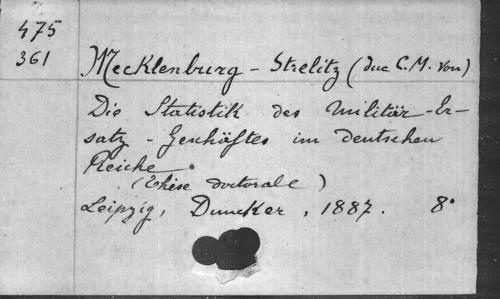 475
361
Mecklenburg - Strelitz (duc C. M. von)
Die Statistik des Militär-Er-
satz - Geschäftes im deutschen
Reiche.
(Thèse doctorale)
Leipzig, Duncker, 1887. 8°